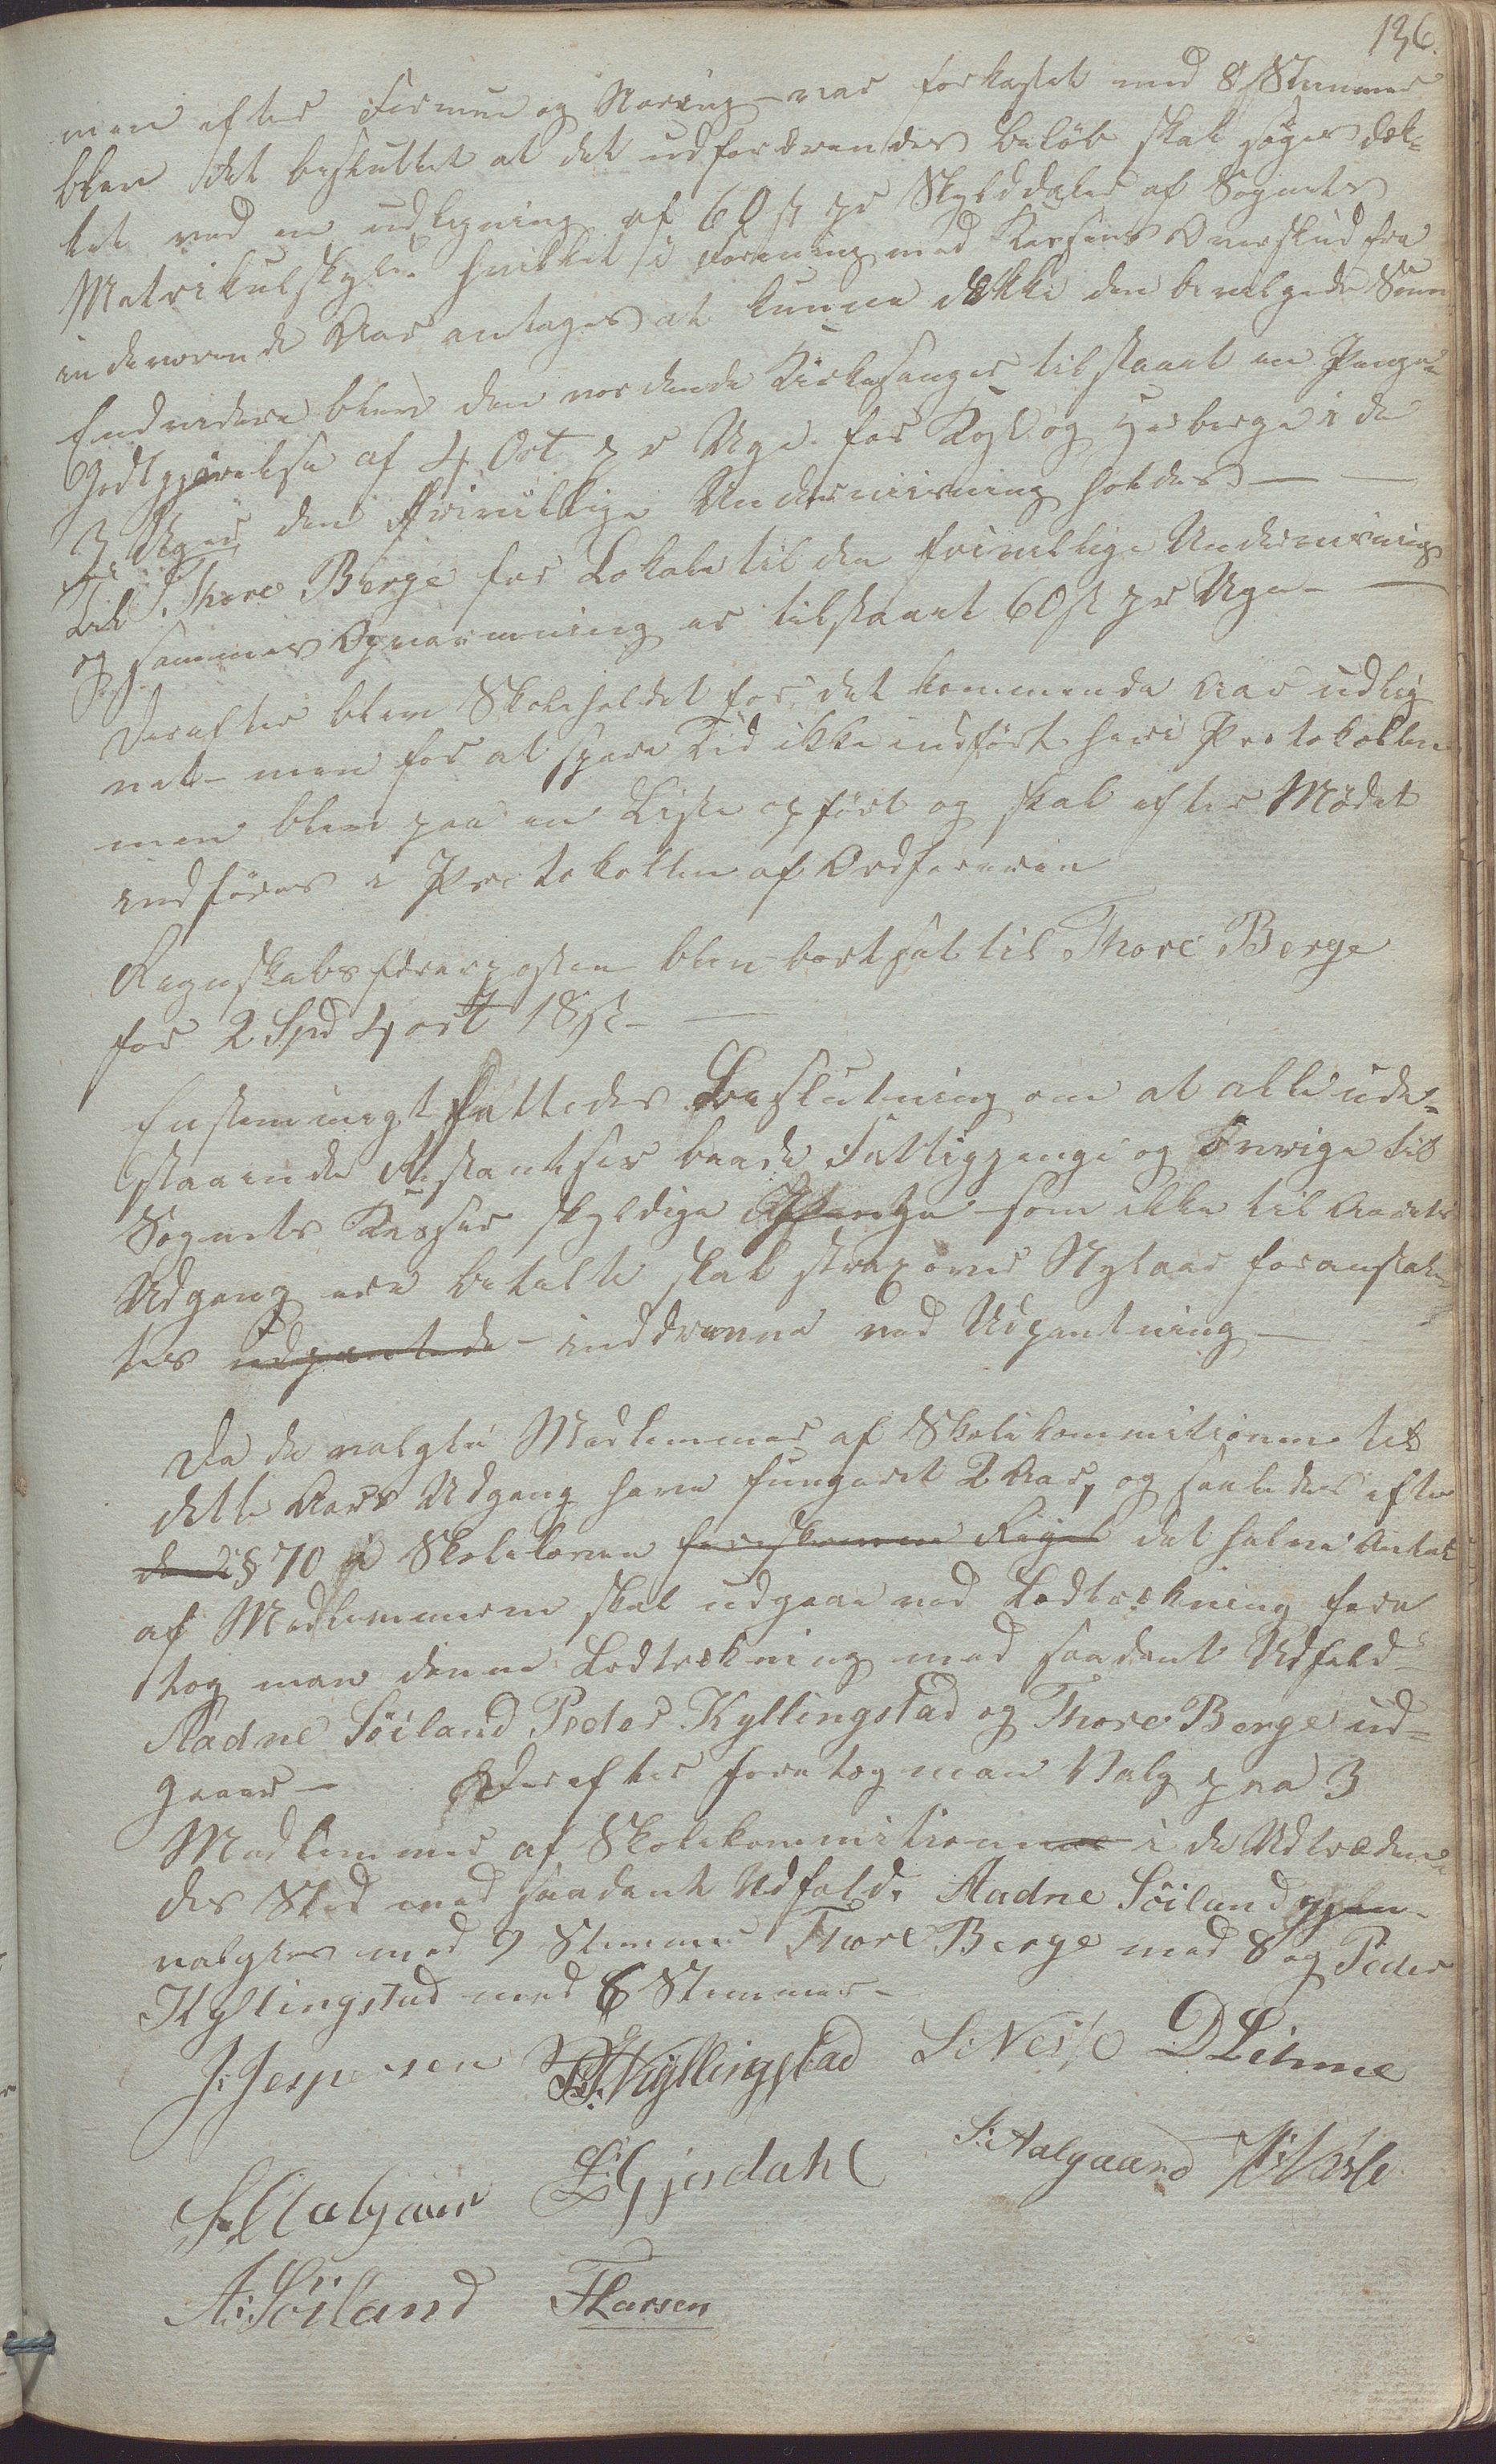 136.
men efter Formue og Næring – var forkastet med 8 Stemmer
blev det besluttet at det udfordrendes beløb skal søges dek-
ket ved en udligning af 60 ß pr Skylddaler af Sognets
Matrikulskyld – hvilket i Forening med Kassens Overskud fra
indeværende Aar antages at kunne dække den bevilgede Sum
Endvidere blev den vordende Kirkesanger tilstaaet en Penge-
Godtgjørelse af 4 Ort pr Uge for Kost og Herberge i de
3 Uger, den frivillige Underviisning holdes –
Til Thore Berge for Lokale til den frivillige Undervisning
og sammes Opvarmning er tilstaaet 60 ß pr Uge –
Derefter blev Skoleholdet for det kommende Aar udlig-
net – men for at spare Tid ikke indført her i Protokollen
men blev paa en Liste opført og skal efter Mødet
indføres i Protokollen af Ordføreren
Regnskabsførerposten blev bortsat til Thore Berge
for 2 Spd 4 ort 18 ß –
Enstemmigt fattedes Beslutning om at alle ude-
staaende Restantser baade Fattigpenge og Øvrige til
Sognets Kasser skyldige – som ikke til Aarets
Udgang ere betalte skal strax over Nytaar foranstal-
tes udpantede – inddrevne ved Udpantning –
Da de valgte Medlemmer af Skolekommitionen til
dette Aars Udgang have fungeret 2 Aar, og saaledes efter
den i § 70 i Skoleloven foreskrevne Regel det halve Antal
af Medlemmerne skal udgaae ved Lodtrækning fore
tog man denne Lodtrækning med saadant Udfald –
Aadne Söiland Peder Kyllingstad og Thore Berge ud-
gaaer – Derefter foretog man Valg paa 3
Medlemmer af Skolekommitionen i de Udtræden-
des Sted med saadant Udfald. Aadne Söiland gjen-
valgtes med 9 Stemmer Thore Berge med 8 og Peder
Kyllingstad med 6 Stemmer –
J. Jespersen P. Kyllingstad S. Nesse D Limme
E Gjesdahl S. Aalgaard
A. Söiland T Larsen